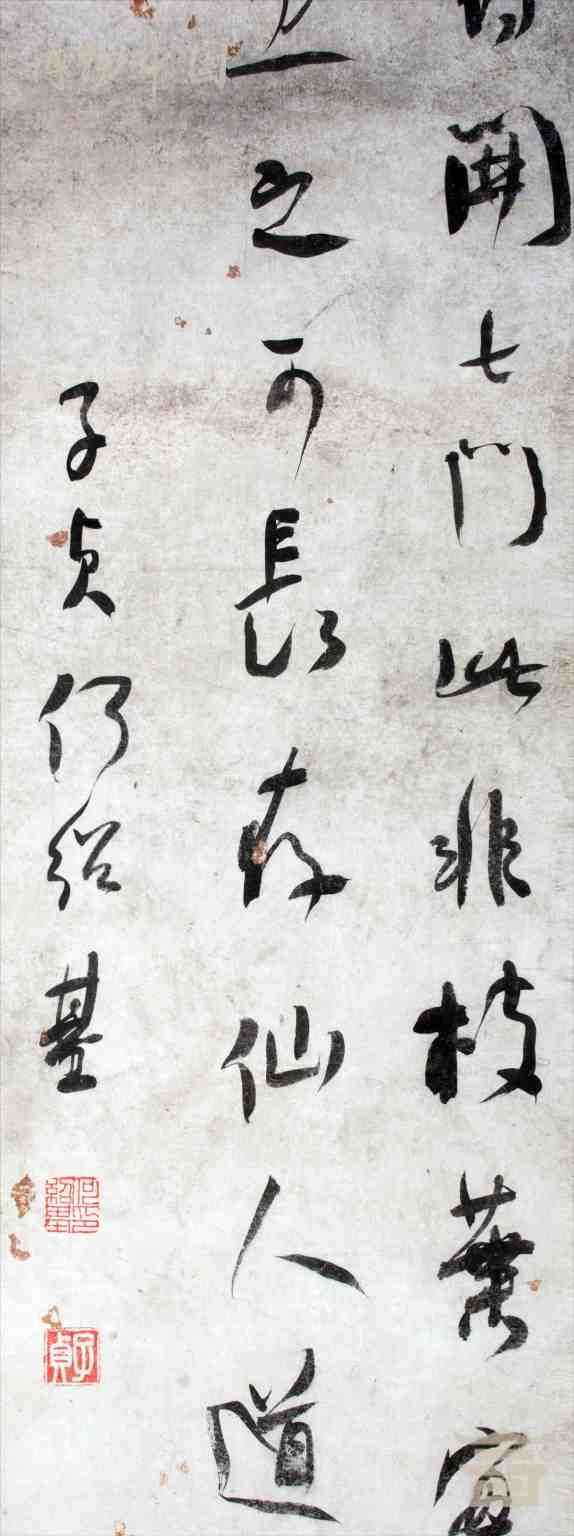 開七門此非枝葉實
之可長存仙人道
子貞何紹基
何紹基印
子貞